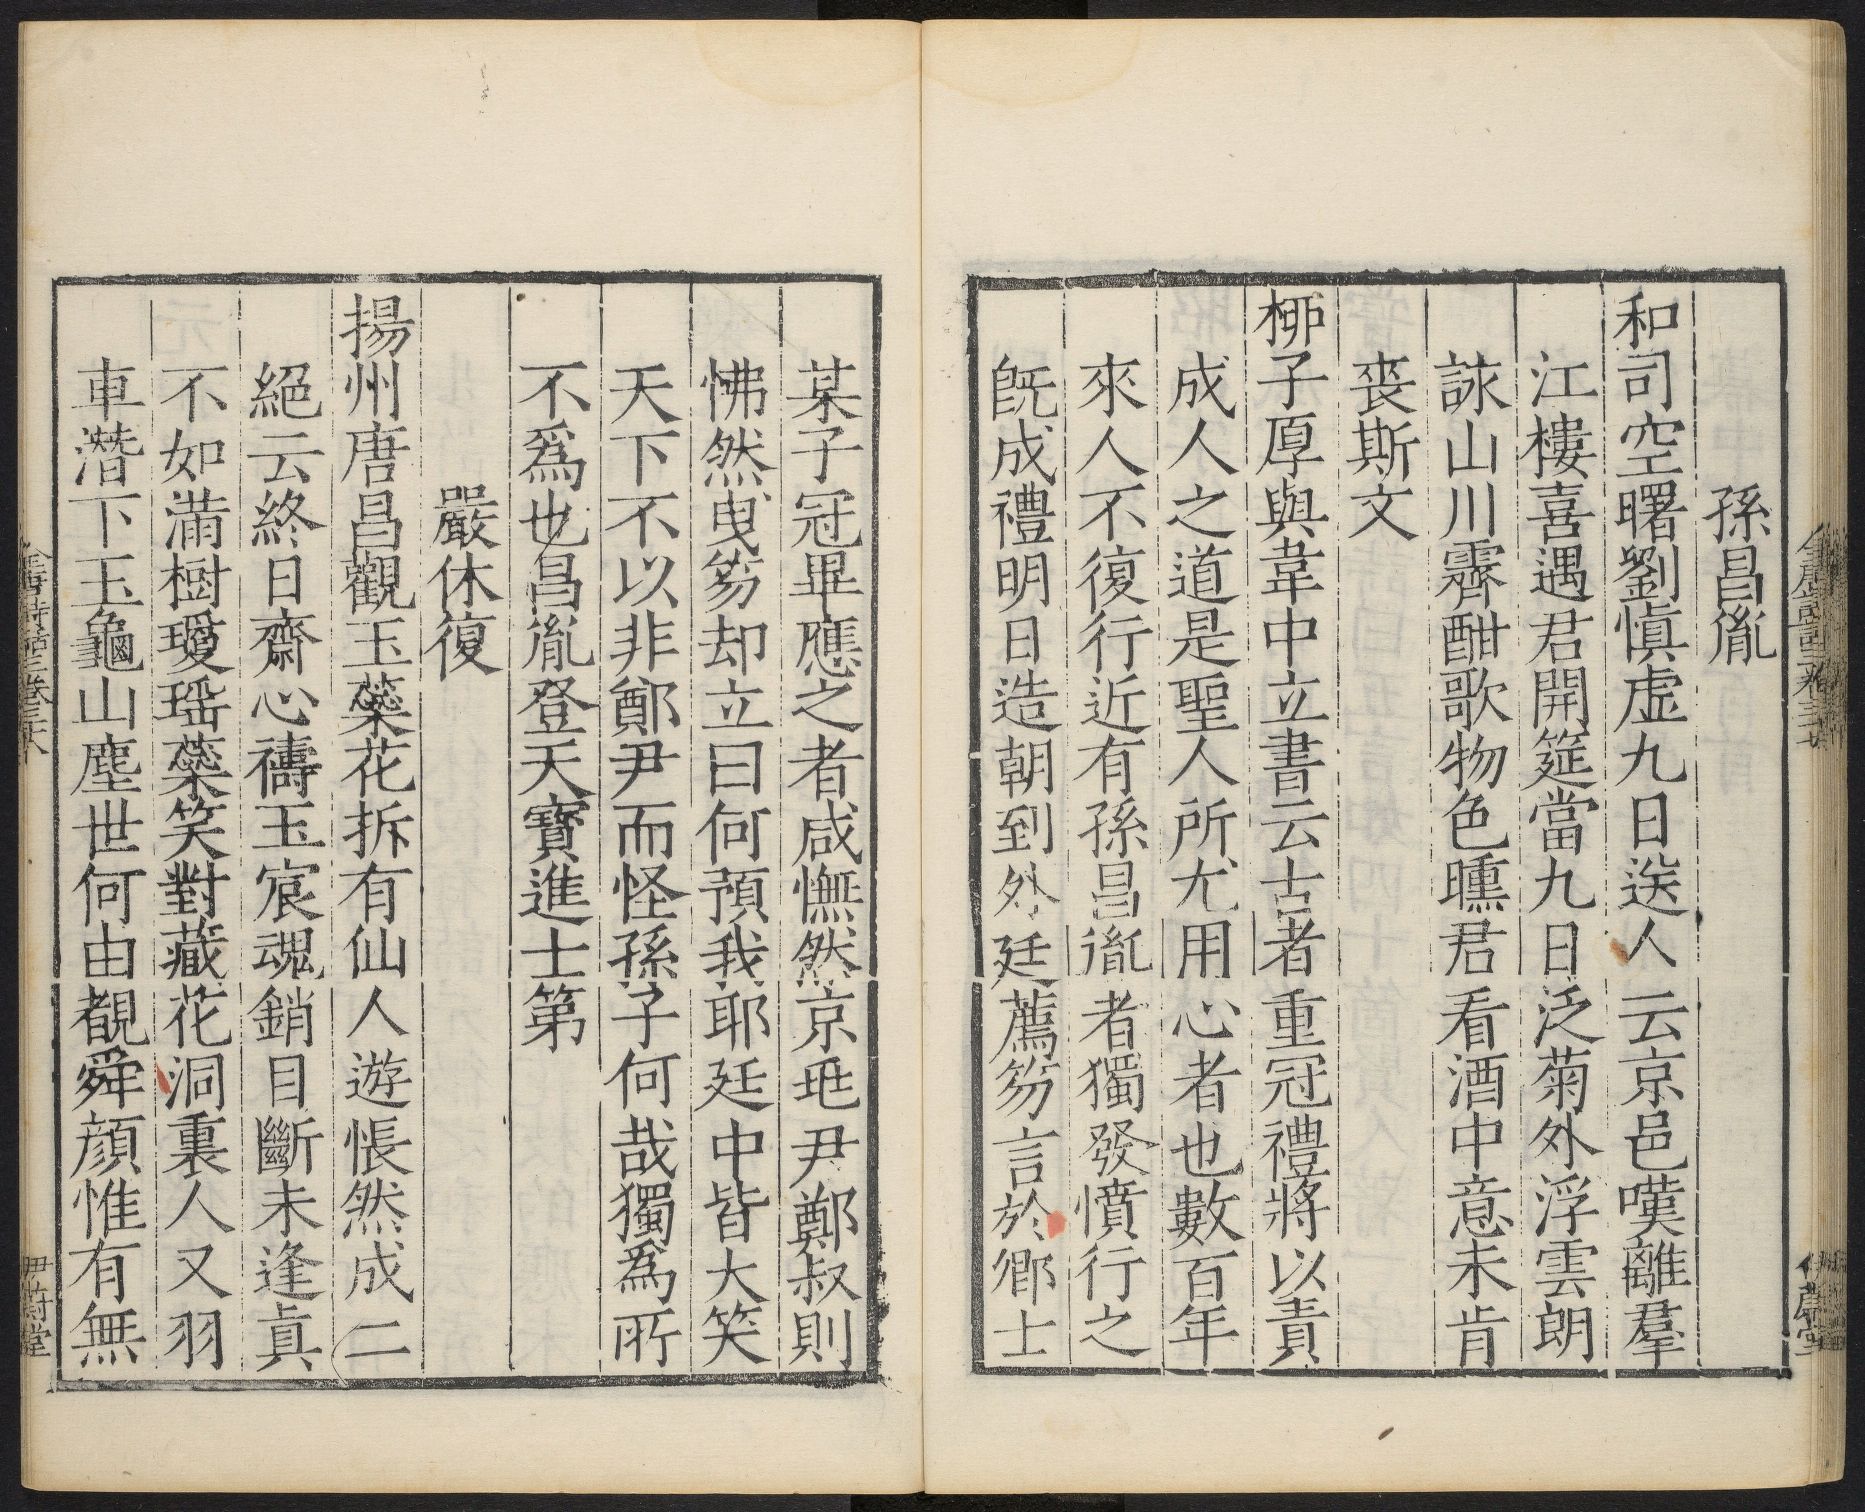 孫昌胤
和司空曙劉愼虛九日送人云京邑嘆離羣
江樓喜遇君開筵當九日泛菊外浮雲朗
詠山川霽酣歌物色曛君看酒中意未肯
喪斯文
栁子厚與韋中立書云古者重冠禮將以責
成人之道是聖人所尤用心者也數百年
來人不復行近有孫昌胤者獨發憤行之
旣成禮明日造朝到外廷薦笏言於鄉士
某子冠畢應之者咸憮然京兆尹鄭叔則
怫然曳笏却立曰何預我耶廷中皆大笑
天下不以非鄭尹而怪孫子何哉獨爲所
不爲也昌胤登天寶進士第
嚴休復
揚州唐昌觀玉蘂花拆有仙人遊悵然成二
絕云終日齋心禱玉宸魂銷目斷未逢眞
不如滿樹瓊瑶蘂笑對藏花洞裏人又羽
車潛下玉龜山塵世何由覩舜顔惟有無
伊蔚堂